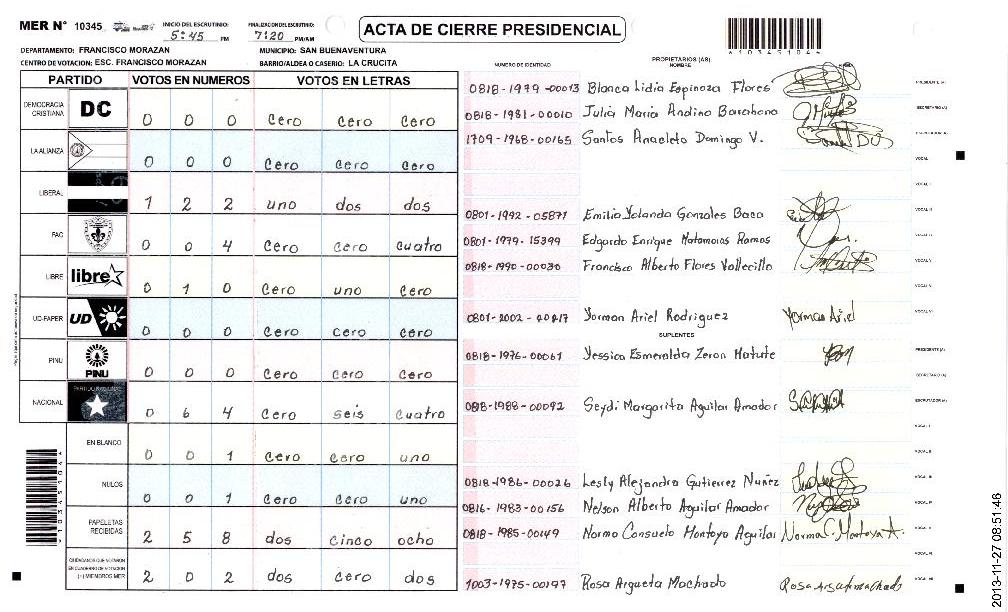 MER Nº 10345 INICIO DEL ESCRUTINIO: 5:45 PM FINALIZACION DEL ESCRUTINIO: 7:20 PM/AM ACTA DE CIERRE PRESIDENCIAL
DEPARTAMENTO: FRANCISCO MORAZAN MUNICIPIO: SAN BUENAVENTURA
CENTRO DE VOTACION: ESC. FRANCISCO MORAZAN BARRIO/ALDEA O CASERIO: LA CRUCITA
NUMERO DE IDENTIDAD PROPIETARIOS (AS) NOMBRE
PARTIDO VOTOS EN NUMEROS VOTOS EN LETRAS
DEMOCRACIA CRISTIANA DC 0 0 0 Cero Cero Cero
LA ALIANZA 0 0 0 Cero Cero Cero
LIBERAL 1 2 2 uno dos dos
FAC 0 0 4 Cero Cero Cuatro
LIBRE libre 0 1 0 Cero uno Cero
UD-FAPER UD 0 0 0 Cero Cero Cero
PINU PINU 0 0 0 Cero Cero Cero
NACIONAL PARTIDO NACIONAL 0 6 4 Cero seis Cuatro
EN BLANCO 0 0 1 Cero Cero uno
NULOS 0 0 1 Cero Cero uno
PAPELETAS RECIBIDAS 2 5 8 dos cinco ocho
CIUDADANOS QUE VOTARON EN CUADERNO DE VOTACION (+) MIEMBROS MER 2 0 2 dos Cero dos
0818-1979-00013 Blanca Lidia Espinoza Flores PRESIDENTE (A)
0818-1981-00010 Julia Maria Andino Barahona SECRETARIO (A)
1709-1968-00165 Santos Anacleto Domingo V. ESCRUTADOR (A)
VOCAL
VOCAL I
0801-1992-05871 Emilia Yolanda Gonzales Baca VOCAL II
0801-1979-15399 Edgardo Enrique Matamoros Ramos
0818-1990-00030 Francisco Alberto Flores Vallecillo VOCAL IV
VOCAL V
0801-2002-00417 Yorman Ariel Rodriguez Yorman Ariel VOCAL VI
SUPLENTES
0818-1976-00061 Yessica Esmeralda Zeron Matute PRESIDENTE (A)
SECRETARIO (A)
0818-1988-00092 Seydi Margarita Aguilar Amador ESCRUTADOR (A)
VOCAL I
VOCAL II
0818-1986-00026 Lesly Alejandra Gutierrez Nuñez VOCAL III
0816-1983-00156 Nelson Alberto Aguilar Amador VOCAL IV
0818-1985-00149 Norma Consuelo Montoya Aguilar Norma C. Montoya A.
VOCAL VI
1003-1975-00197 Rosa Argueta Machado Rosa Argueta Machado VOCAL VII
2013-11-27 08:51:46